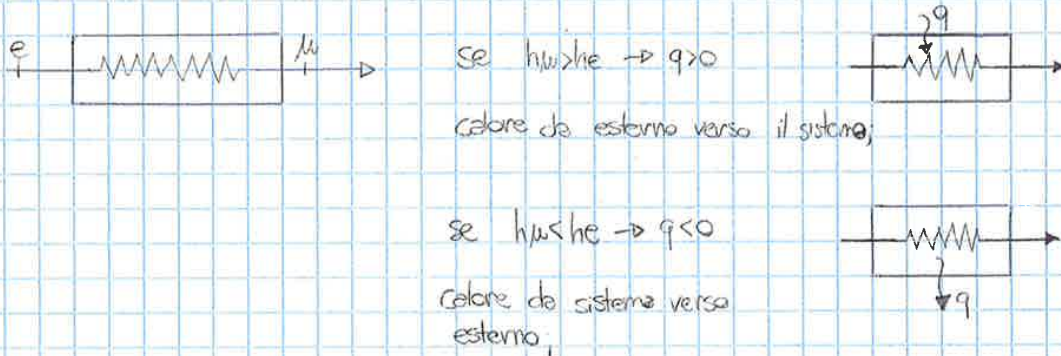 e
u
se hu>he → q>0
q
calore da esterno verso il sistema;
se hu<he → q<0
calore da sistema verso
esterno;
q